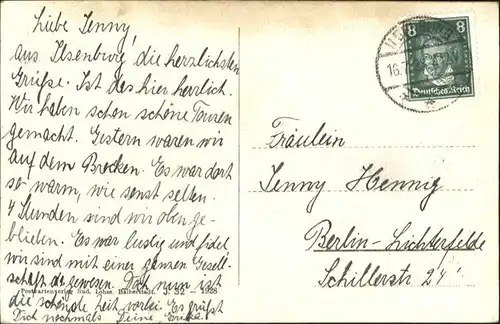 Liebe Jenny,
aus Ilsenburg die herzlichsten
Grüße. Ist das hier herrlich.
Wir haben schon schöne Touren
gemacht. Gestern waren wir
auf dem Brocken. Es war dort
so warm, wie sonst selten.
4 Stunden sind wir oben ge-
blieben. Es war lustig und fidel
wir sind mit einer ganzen Gesell-
schaft da gewesen. Doch nun ist
die schöne Zeit vorbei. Es grüßt
Dich nochmals Deine
Postkartenverlag Rud. Lohm. Halberstadt.
8 8
Deutsches Reich
16.
Fräulein
Jenny Hennig
Berlin-Lichterfelde
Schillerstr 24